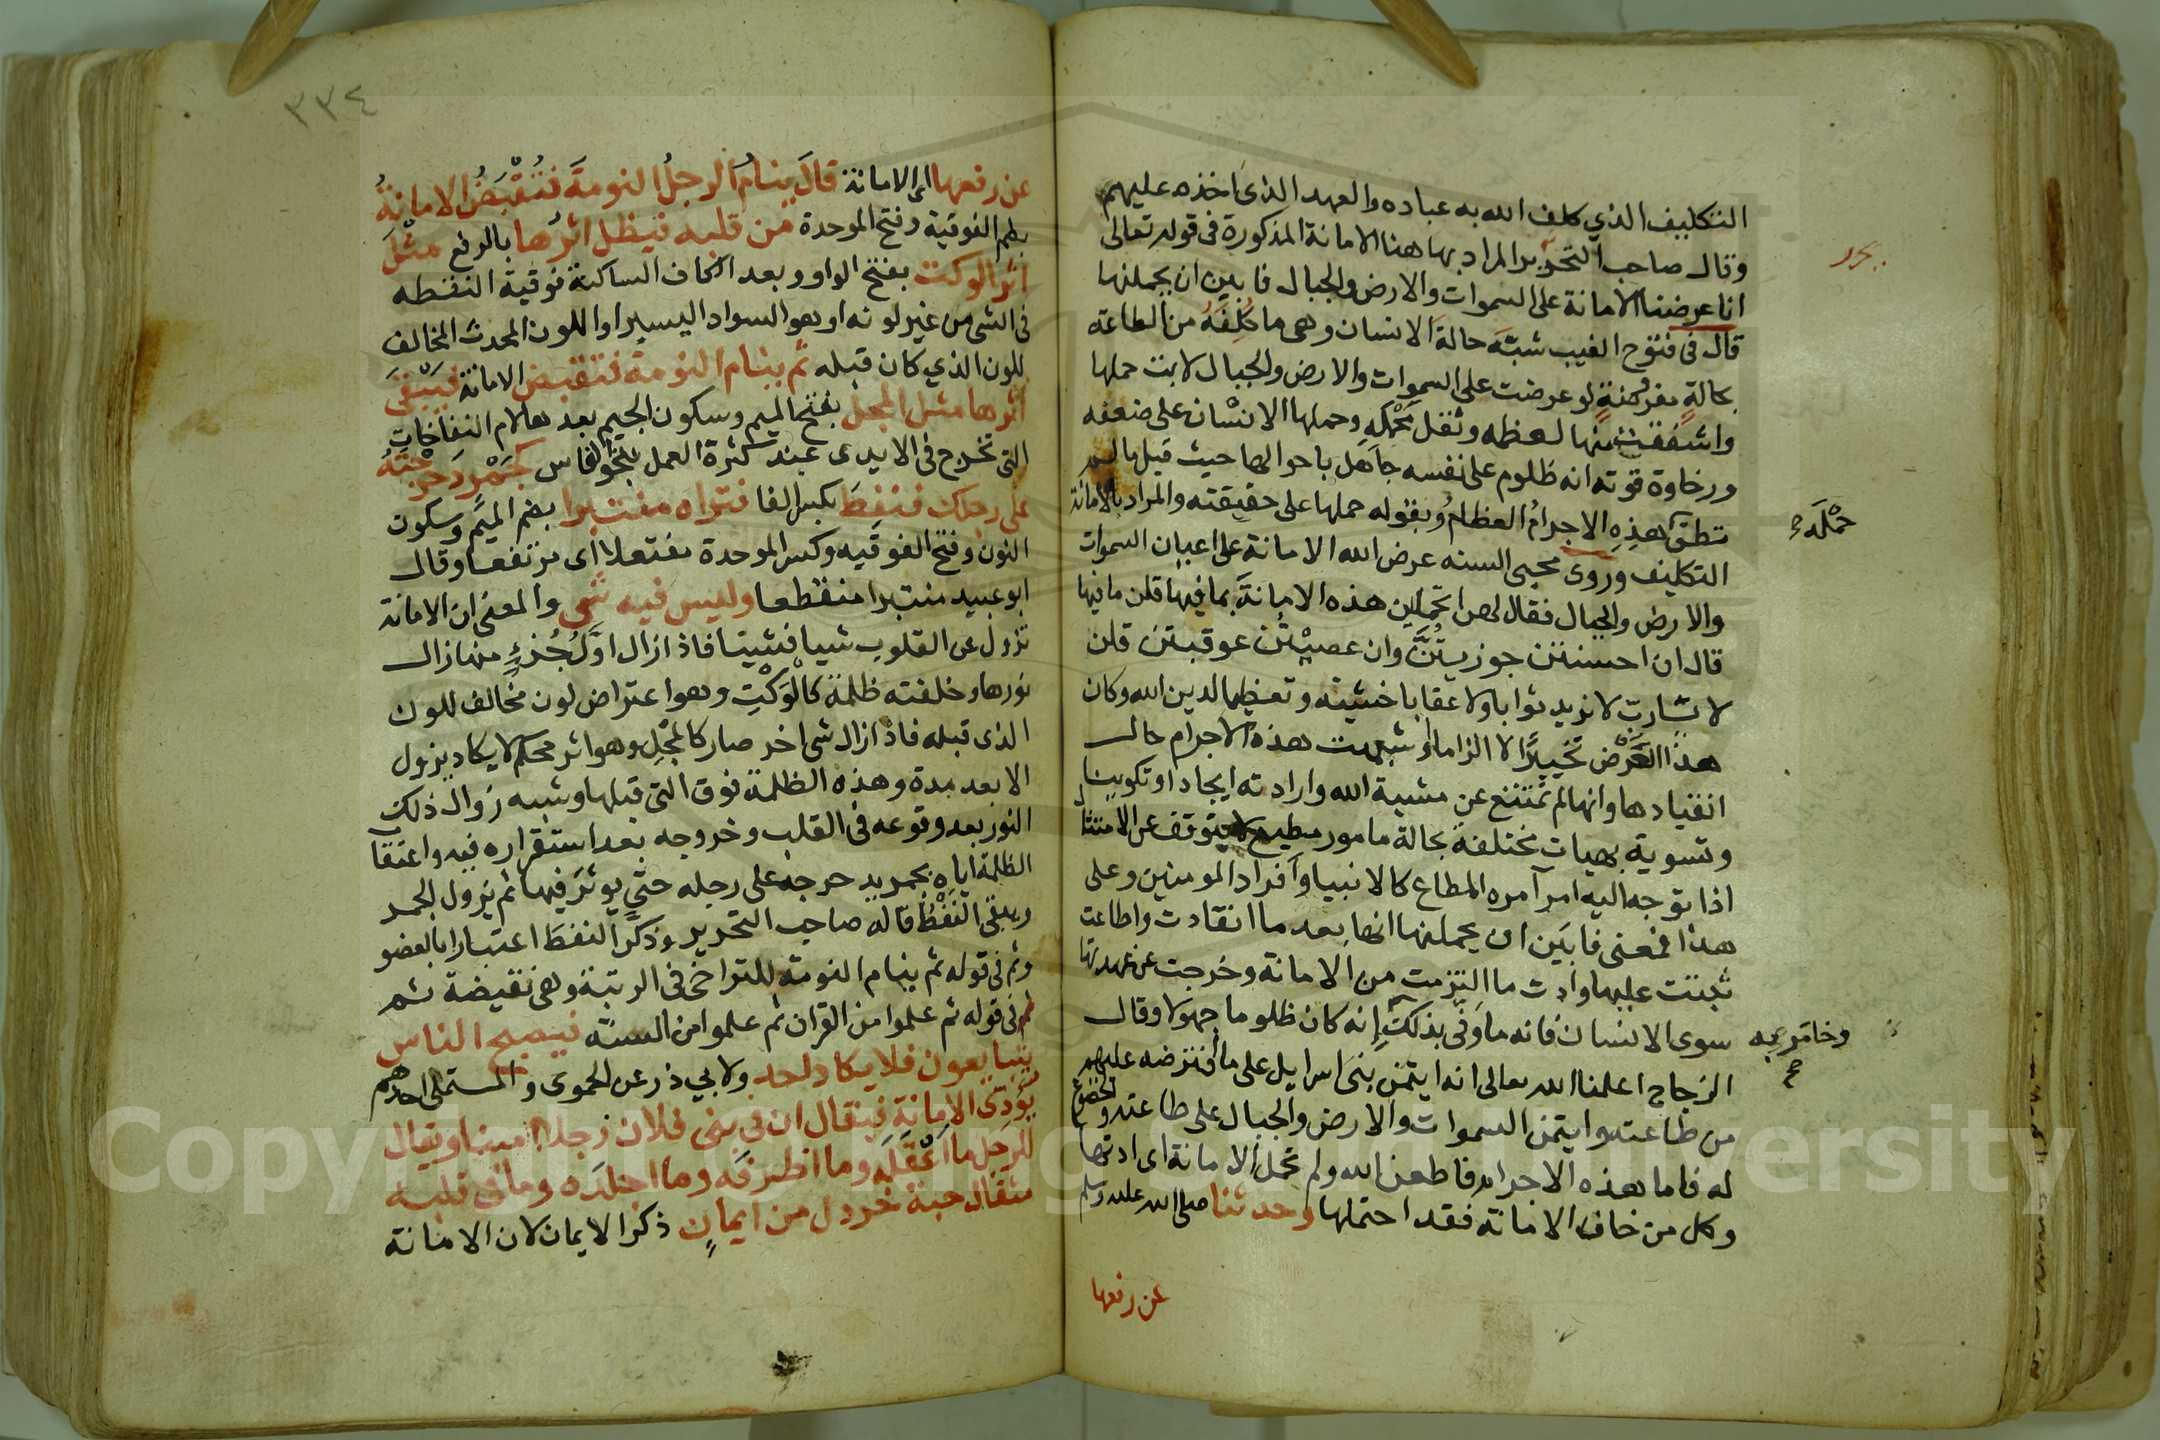 التكليف الذي كلف الله به عباده والعهد الذي اخذه عليهم
وقال صاحب التحرير المراد بها هنا الامانة المذكورة في قوله تعالى
انا عرضنا الامانة على السموات والارض والجبال فابين ان يحملنها
قال في فتوح الغيب شبّه حالة الانسان وهي ما كُلِّفَهُ من الطاعة
بحالةٍ مفروضةٍ لو عرضت على السموات والارض والجبال لابت حملها
واشفقت منها لعظمه وثقل محمله وحملها الانسان على ضعفه
ورخاوة قوته انه ظلوم على نفسه جاهل باحوالها حيث قبلها لم
تطق هذه الاجرامُ العظامُ وبقوله حملها على حقيقته والمراد بالامانة
التكليف وروى محيي السنه عرض الله الامانة على اعيان السموات
والارض والجبال فقال لهن اتحملن هذه الامانة بما فيها قلن ما فيها
قال ان احسنتن جوزيتُنَّ وان عصيْتُن عوقبتن قلن
لا يا رب لا نريد ثوابا ولا عقابا خشيته وتعظيما لدين الله وكان
هذا العرض تخييرًا لا الزاما او شبهت هذه الاجرام حال
انقيادها وانها لم تمتنع عن مشيية الله وارادته ايجادا وتكوينا
وتسوية بهيات مختلفة بحالة مامور مطيع لا يتوقف عن الامتثال
اذا توجه اليه امر آمره المطاع كالانبيا وافراد المومنين وعلى
هذا فمعنى فابين ان يحملنها انها بعد ما انقادت واطاعت
ثبتت عليها وادت ما التزمت من الامانة وخرجت عن عهدتها
سوى الانسان فانه ما وفّى بذلك انه كان ظلوما جهولا وقال
الزجاج اعلمنا الله تعالى انه ايتمن بني اسرايل على ما افترضه عليهم
من طاعته وايتمن السموات والارض والجبال على طاعته والخضوع
له فاما هذه الاجرام فاطعن الله ولم تحمل الامانة اي ادتها
وكل من خان الامانة فقد احتملها وحدثنا صلى الله عليه وسلم
عن رفعها
حَمْلَه
٣٣٤
عن رفعها اي الامانة قال ينام الرجل النومة فتُقْبَضُ الامانةُ
بضم الفوقية وفتح الموحدة من قلبه فيظل اثرها بالرفع مثْلَ
اثر الوكت بفتح الواو وبعد الكاف الساكنة فوقية النقطه
في الشي من غير لونه او هو السواد اليسير او اللون المحدث المخالف
للون الذي كان قبله ثم ينام النومة فتقبض الامانة فيَبْقَى
اثرها مثل المجل بفتح الميم وسكون الجيم بعدها لام النفاخات
التي تخرج في الايدي عند كثرة العمل بنحو الفاس كجَمْر دَحرجتَهُ
على رجلك فنفِطَ بكسر الفا فتراه منتبرا بضم الميم وسكون
النون وفتح الفوقيه وكسر الموحدة مفتعلا اي مرتفعا وقال
ابو عبيد منتبرا منقطعا وليس فيه شي والمعنى ان الامانة
تزول عن القلوب شيا فشيئا فاذا زال اوّلُ جُزءٍ منها زال
نورها وخلفته ظلمة كالْوَكْتِ وهو اعتراض لون مخالف للون
الذي قبله فاذا زال شي اخر صار كالمجْلِ وهو اثر محكم لا يكاد يزول
الا بعد مدة وهذه الظلمة فوق التي قبلها وشبه زوال ذلك
النور بعد وقوعه في القلب وخروجه بعد استقراره فيه واعتقاب
الظلمة اياه بجمر يدحرجه على رجله حتى يوثر فيها ثم يزول الجمر
ويبقى النَّفْطُ قاله صاحب التحرير وذكّر النفط اعتبارا بالعضو
وثم في قوله ثم ينام النومة للتراخي في الرتبة وهي نقيضة ثم
في قوله ثم علموا من القران ثم علموا من السنّه فيصبح الناس
يتبايعون فلا يكاد احد ولابي ذر عن الحموي والمستملي احدهم
يُؤدّي الامانة فيقال ان في بني فلان رجلا امينا ويقال
للرجل ما اعْقَلَه وما اظرفه وما اجلده وما في قلبه
مثقال حبة خردل من ايمانٍ ذكر الايمان لان الامانة
Copyright © King Saud University